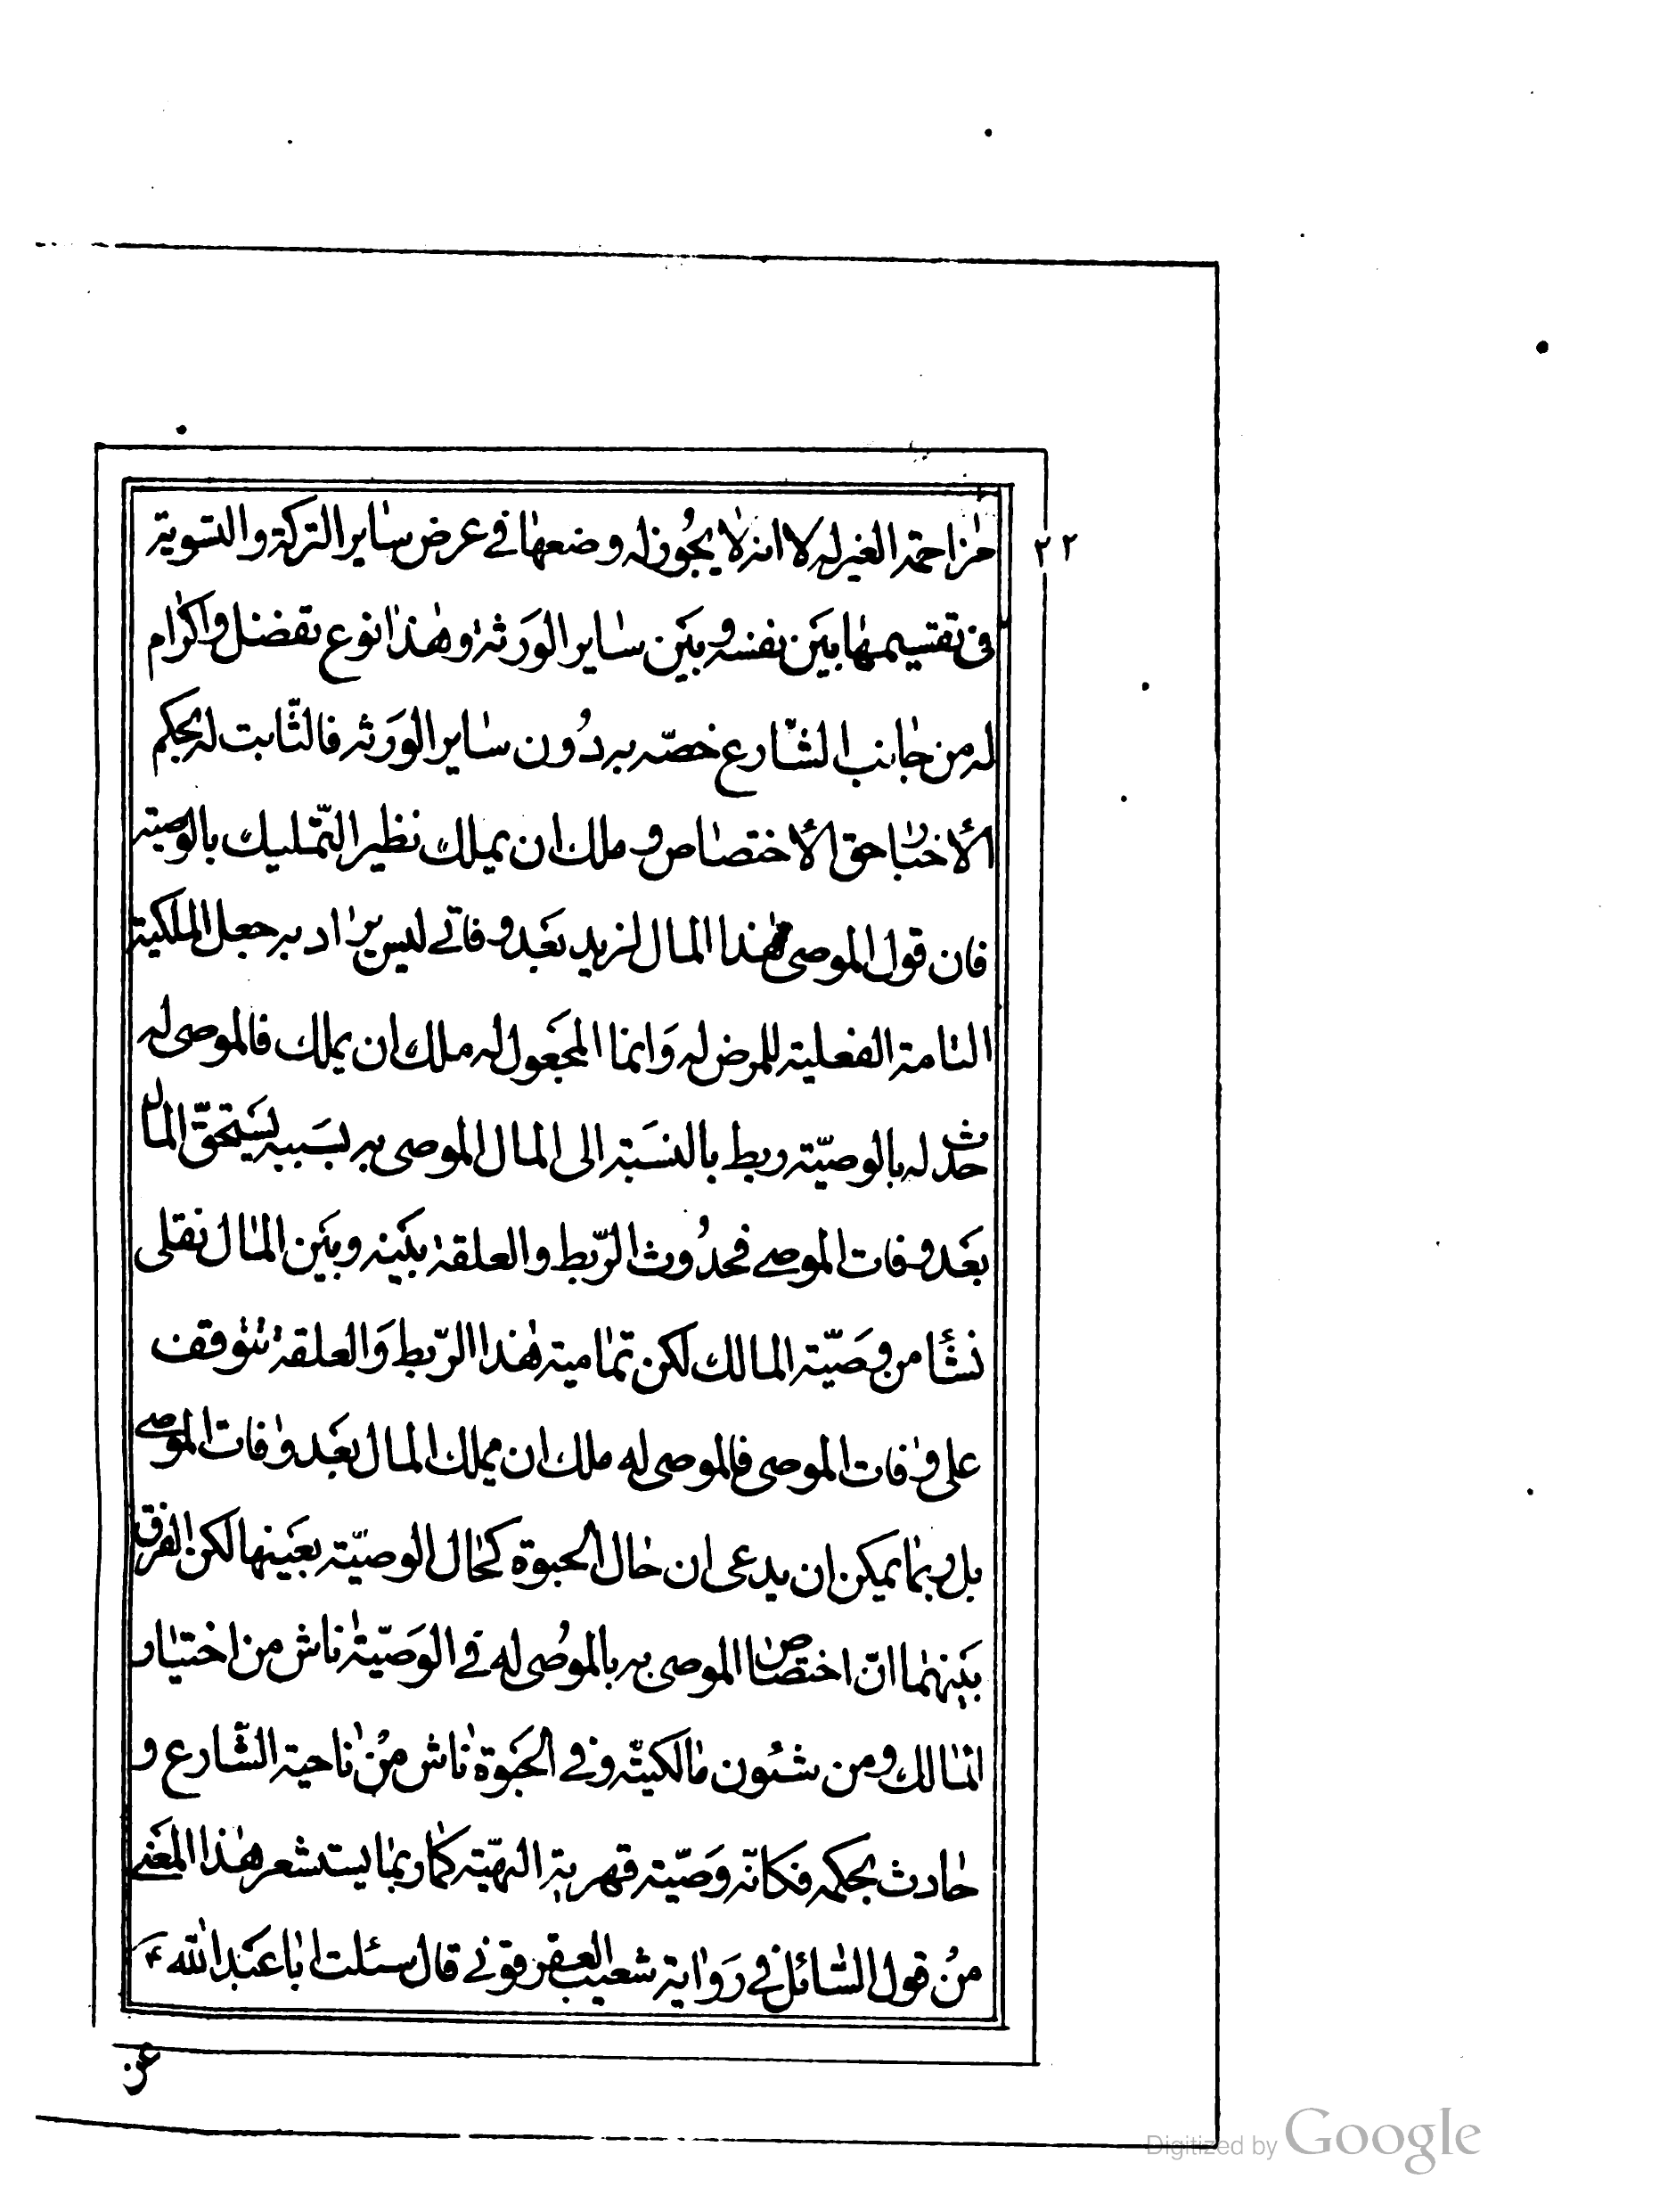 ٢٢
مزاحمة الغير له لا انه لا يجوز له وضعها فى عرض ساير التركة والتسوية
فى تقسيمها بين نفسه وبين ساير الورثة وهذا نوع تفضل واكرام
له من جانب الشارع خصّه به دون ساير الورثه فالثّابت له بحكم
الأخبار حق الأختصاص وملك ان يملك نظير التّمليك بالوصيته
فان قول الموصى هذا المال لزيد بعد وفاتى ليس يراد به جعل الملكية
التامة الفعلية للمرض له وانما المجعول له ملك ان يملك فالموصى له
حدث له بالوصيّته ربط بالنسبته الى المال الموصى به بسببه يستحقّ المال
بعد وفات الموصى فحدوث الرّبط والعلقة بينه وبين المال نقلى
نشأ من وصيّته المالك لكن تمامية هذا الرّبط والعلقة تتوقف
على وفات الموصى فالموصى له ملك ان يملك المال بعد وفات الموصى
بل ربما يمكن ان يدعى ان حال الحبوة كحال الوصيّته بعينها لكن الفرق
بينهما انّ اختصاص الموصى به بالموصى له فى الوصيّة ناش من اختيار
المالك ومن شئون مالكيتّه وفى الحبوة ناش من ناحية الشّارع و
حادث بحكمه فكانّه وصيّته قهرية الهيّته كما ربما يستشعر هذا المعنى
من قول السّائل فى رواية شعيب العقرقوفى قال سئلت ابا عبد الله ع
عن
Digitized by Google